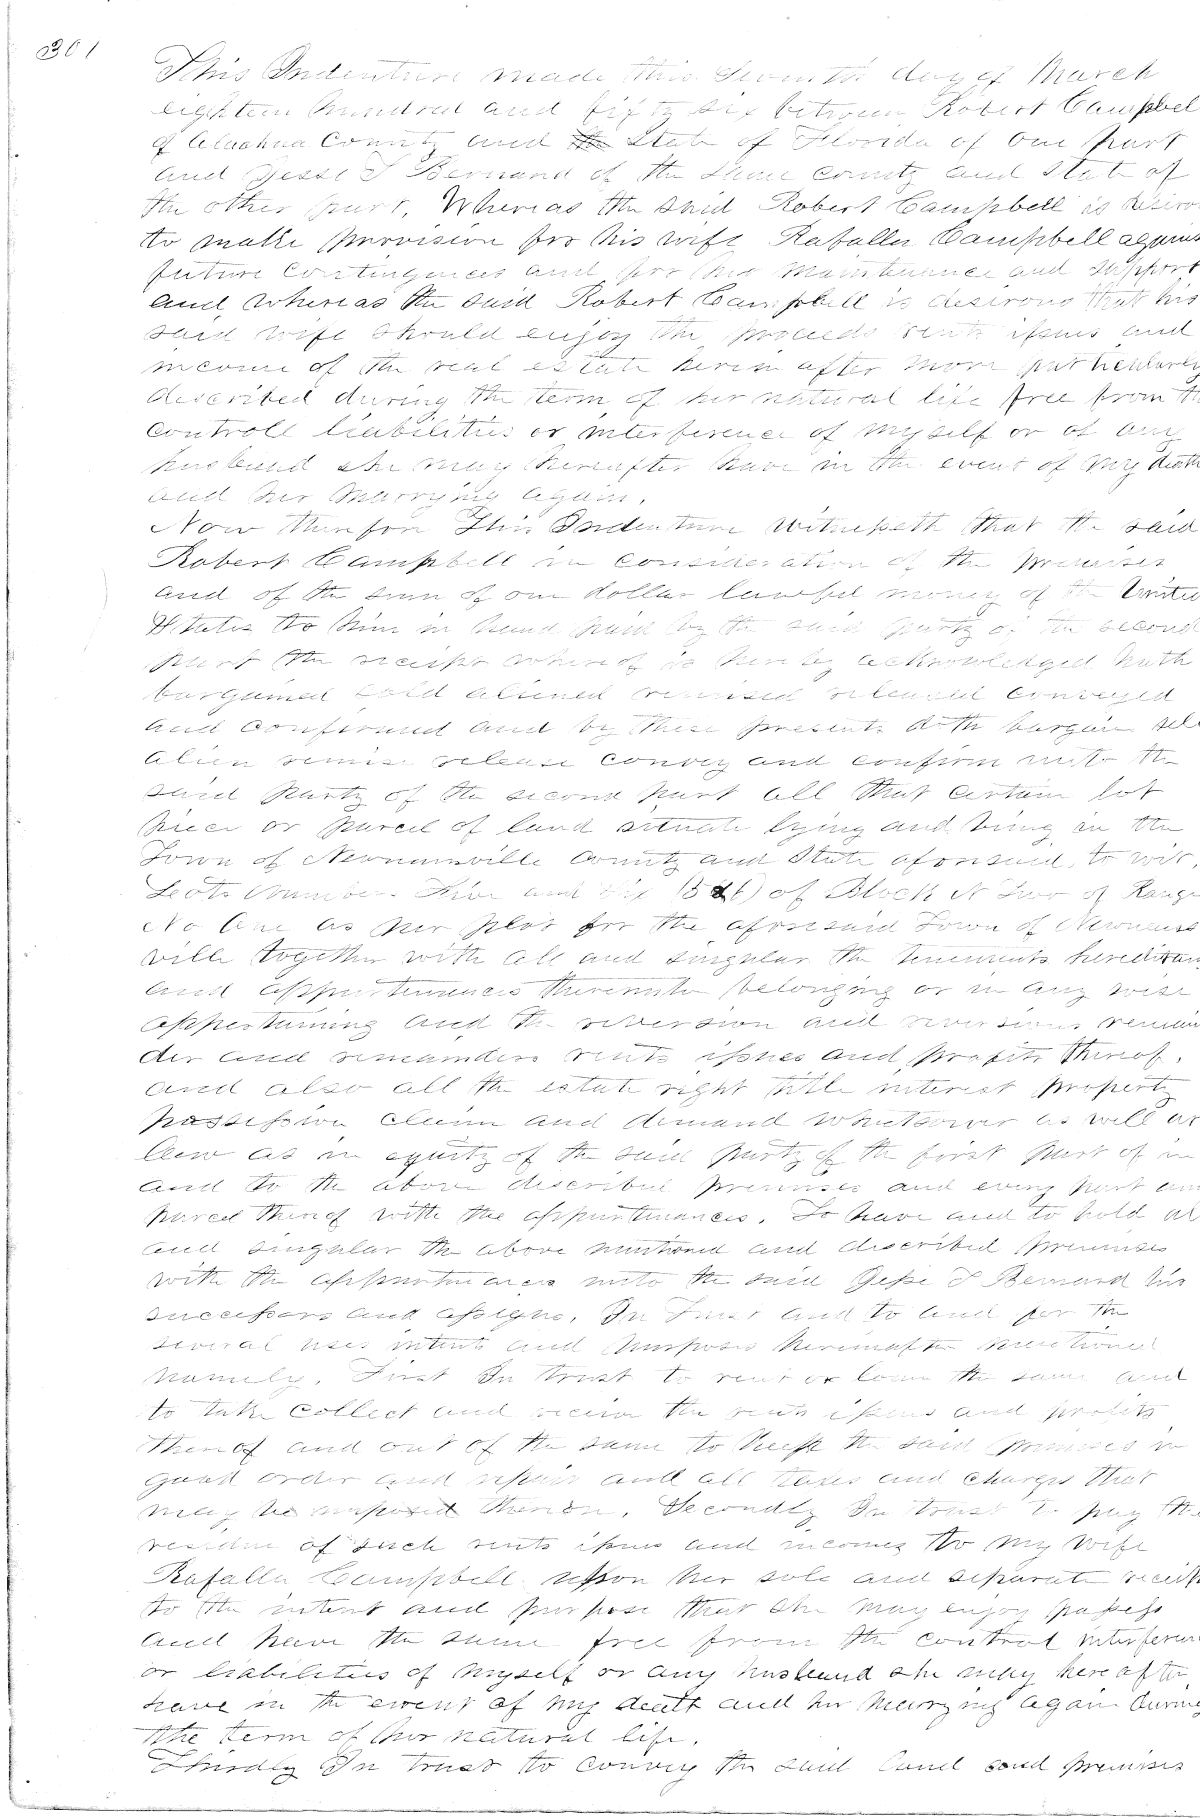 301
This Indenture made this Seventh day of March
eighteen hundred and fifty six between Robert Campbel
of Alachua County and the State of Florida of one part
and Jesse J Bernard of the same county and State of
the other part. Whereas the said Robert Campbell is desirou
to make provision for his wife Rafalla Campbell agains
future contingences and for her maintenance and support
and whereas the said Robert Campbell is desirous that his
said wife should enjoy the proceeds rents issues and
income of the real estate herein after more particularly
described during the term of her natural life free from th
controll liabilities or interference of myself or of any
husband she may hereafter have in the event of my death
and her marrying again.
Now therefore This Indenture witnesseth that the said
Robert Campbell in consideration of the premises
and of the sum of one dollar lawful money of the United
States to him in hand paid by the said party of the second
part the receipt whereof is hereby acknowledged hath
bargained sold aliened remised released conveyed
and confirmed and by these presents doth bargain sell
alien remise release convey and confirm unto the
said party of the second part all that certain lot
piece or parcel of land situate lying and being in the
Town of Newnansville County and State aforesaid, to wit,
Lots Number Five and Six (5&6) of Block N Two of Range
No One as per plot for the aforesaid Town of Newnans
ville together with all and singular the tenements hereditam
and appurtenances thereunto belonging or in any wise
appertaining and the reversion and reversions remain
der and remainders rents issues and profits thereof,
and also all the estate right title interest property
possession claim and demand whatsoever as well at
law as in equity of the said party of the first part of in
and to the above described premises and every part and
parcel thereof with the appurtenances. To have and to hold al
and singular the above mentioned and described premises
with the appurtenances unto the said Jesse J Bernard his
successors and assigns. In Trust and to and for the
several uses intents and purposes hereinafter mentioned
namely. First In trust to rent or loan the same and
to take collect and receive the rents issues and profits
thereof and out of the same to keep the said premises in
good order and repair and all taxes and charges that
may be imposed thereon. Secondly In trust to pay the
residue of such rents issues and incomes to my wife
Rafalla Campbell upon her sole and separate receipt
to the intent and purpose that she may enjoy possess
and have the same free from the control interferen
or liabilities of myself or any husband she may hereafter
have in the event of my death and her marrying again during
the term of her natural life.
Thirdly In trust to convey the said land and premises